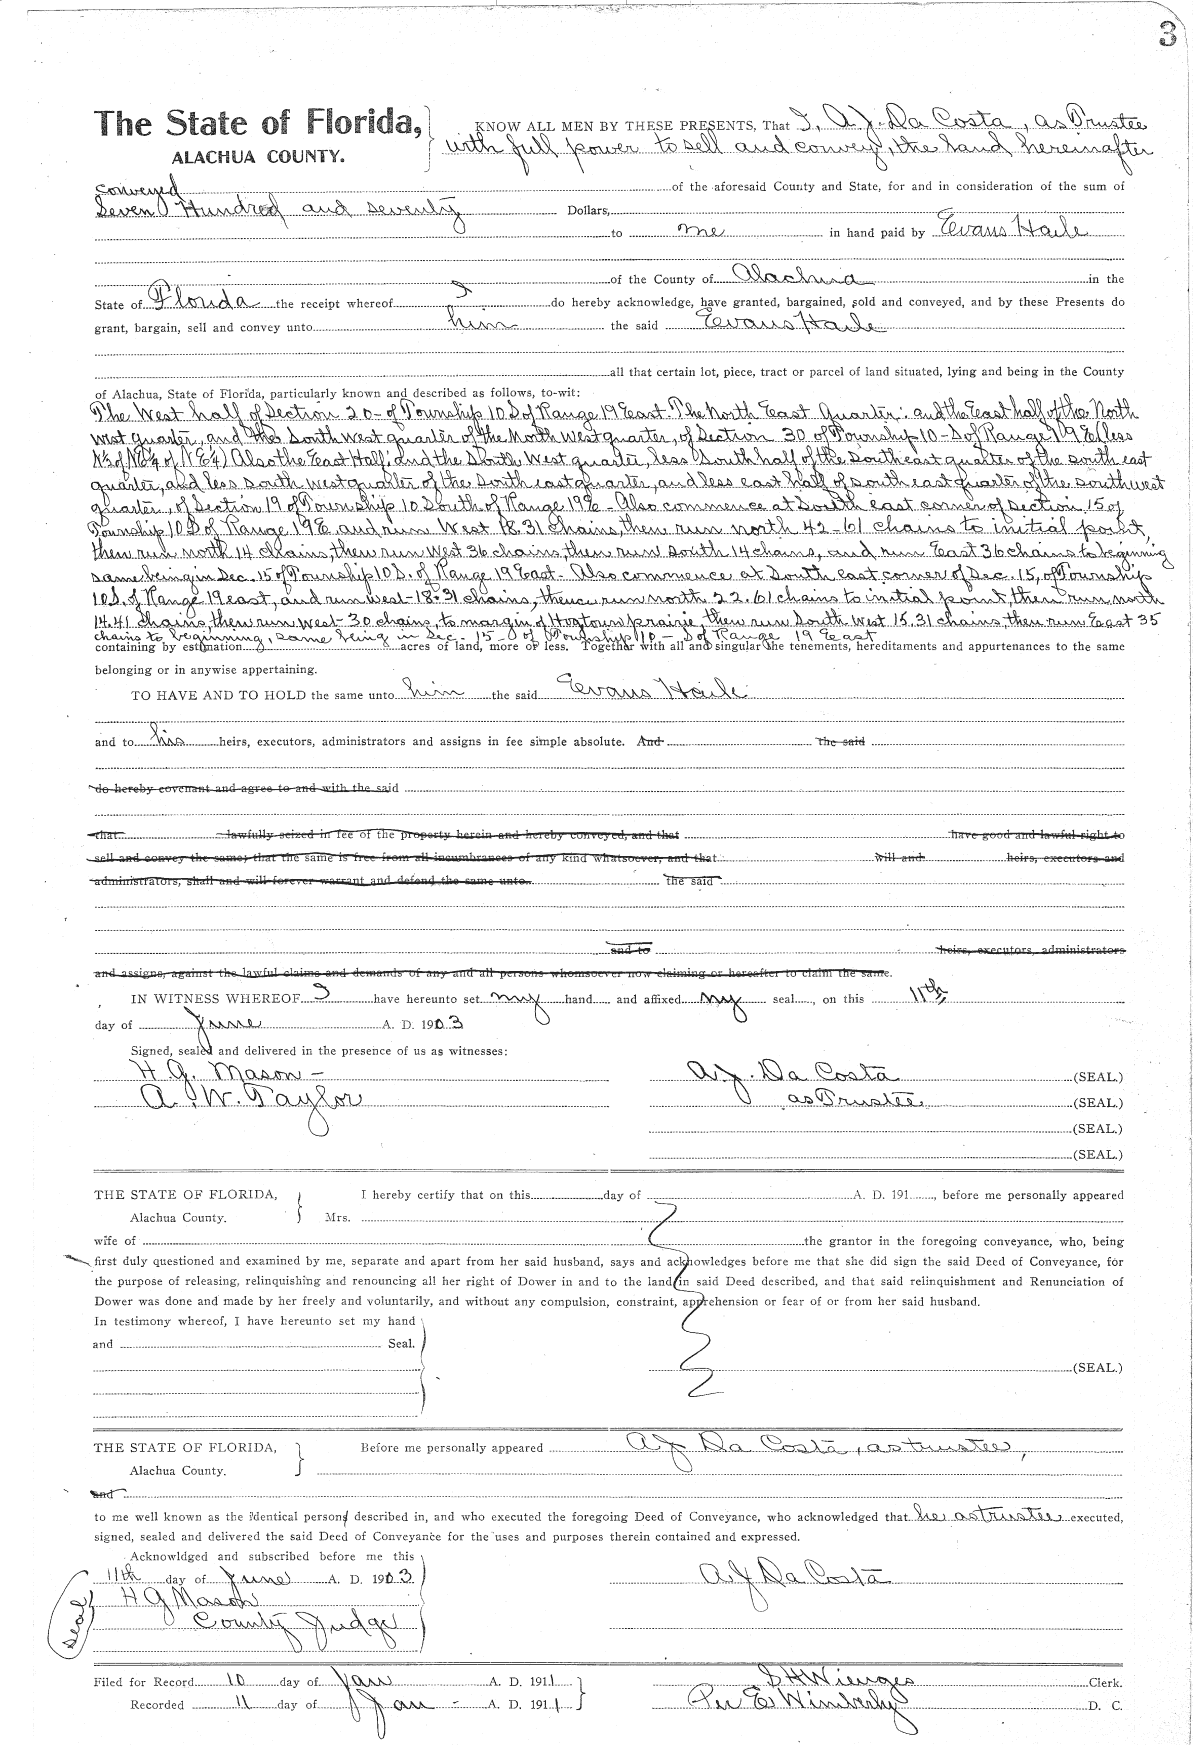 3
The State of Florida,
ALACHUA COUNTY.
KNOW ALL MEN BY THESE PRESENTS, That I, A. J. Da Costa, as Trustee
with full power to sell and convey, the land hereinafter
conveyed of the aforesaid County and State, for and in consideration of the sum of
Seven Hundred and seventy Dollars,
to me in hand paid by Evans Haile
of the County of Alachua in the
State of Florida the receipt whereof I do hereby acknowledge, have granted, bargained, sold and conveyed, and by these Presents do
grant, bargain, sell and convey unto him the said Evans Haile
all that certain lot, piece, tract or parcel of land situated, lying and being in the County
of Alachua, State of Florida, particularly known and described as follows, to-wit:
The West half of Section 20 - of Township 10 S of Range 19 East. The North East Quarter: and the East half of the North
West quarter, and the South West quarter of the North West quarter, of Section 30 of Township 10 - S of Range 19 E (less
N½ of NE¼ of NE¼) Also the East Half; and the South West quarter, less South half of the South east quarter of the south east
quarter, and less south west quarter of the South east quarter, and less east half of south east quarter of the southwest
quarter, of Section 19 of Township 10 South of Range 19 E - Also commence at South east corner of section 15 of
Township 10 S of Range 19 E and run West 18.31 chains, then run north 42-61 chains to initial point,
then run north 14 chains, then run West 36 chains, then run south 14 chains, and run East 36 chains to beginning
same being in Sec. 15 of Township 10 S. of Range 19 East - Also commence at South east corner of Sec. 15, of Township
10 S. of Range 19 east, and run west - 18-31 chains, thence run north 22.61 chains to initial point, then run north
14.41 chains, then run west - 30 chains, to margin of Hogtown prairie, then run South West 15.31 chains, then run East 35
chains to beginning, same being in Sec. 15 - of Township 10 - S of Range 19 East
containing by estimation acres of land, more or less. Together with all and singular the tenements, hereditaments and appurtenances to the same
belonging or in anywise appertaining.
TO HAVE AND TO HOLD the same unto him the said Evans Haile
and to his heirs, executors, administrators and assigns in fee simple absolute. And the said
do hereby covenant and agree to and with the said
that lawfully seized in fee of the property herein and hereby conveyed, and that have good and lawful right to
sell and convey the same; that the same is free from all incumbrances of any kind whatsoever, and that will and heirs, executors and
administrators, shall and will forever warrant and defend the same unto the said
and to heirs, executors, administrators
and assigns, against the lawful claims and demands of any and all persons whomsoever now claiming or hereafter to claim the same.
IN WITNESS WHEREOF I have hereunto set my hand and affixed my seal, on this 11th
day of June A. D. 1903
Signed, sealed and delivered in the presence of us as witnesses:
H. G. Mason - A. J. Da Costa (SEAL.)
A. W. Taylor as Trustee (SEAL.)
(SEAL.)
(SEAL.)
THE STATE OF FLORIDA, I hereby certify that on this day of A. D. 191, before me personally appeared
Alachua County. Mrs.
wife of the grantor in the foregoing conveyance, who, being
first duly questioned and examined by me, separate and apart from her said husband, says and acknowledges before me that she did sign the said Deed of Conveyance, for
the purpose of releasing, relinquishing and renouncing all her right of Dower in and to the land in said Deed described, and that said relinquishment and Renunciation of
Dower was done and made by her freely and voluntarily, and without any compulsion, constraint, apprehension or fear of or from her said husband.
In testimony whereof, I have hereunto set my hand
and Seal.
(SEAL.)
THE STATE OF FLORIDA, Before me personally appeared A J Da Costa, as trustee,
Alachua County.
and
to me well known as the identical person described in, and who executed the foregoing Deed of Conveyance, who acknowledged that he as trustee executed,
signed, sealed and delivered the said Deed of Conveyance for the uses and purposes therein contained and expressed.
Acknowldged and subscribed before me this
11th day of June A. D. 1903 A J Da Costa
H G Mason
County Judge
Seal
Filed for Record 10 day of Jan A. D. 1911 S H Wienges Clerk.
Recorded 11 day of Jan - A. D. 1911 Per E Wimberly D. C.